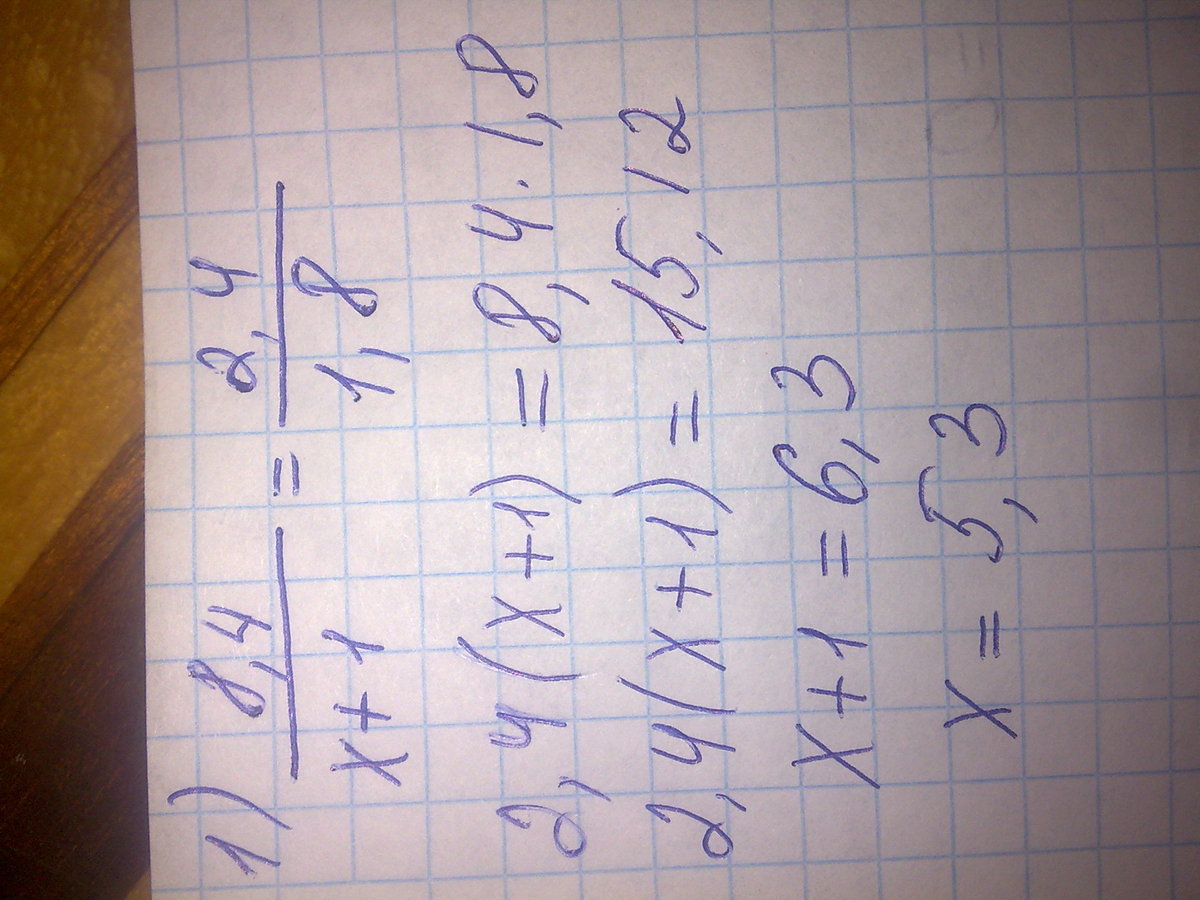 1) 8,4/x+1 = 2,4/1,8
2,4(x+1) = 8,4·1,8
2,4(x+1) = 15,12
x+1 = 6,3
x = 5,3